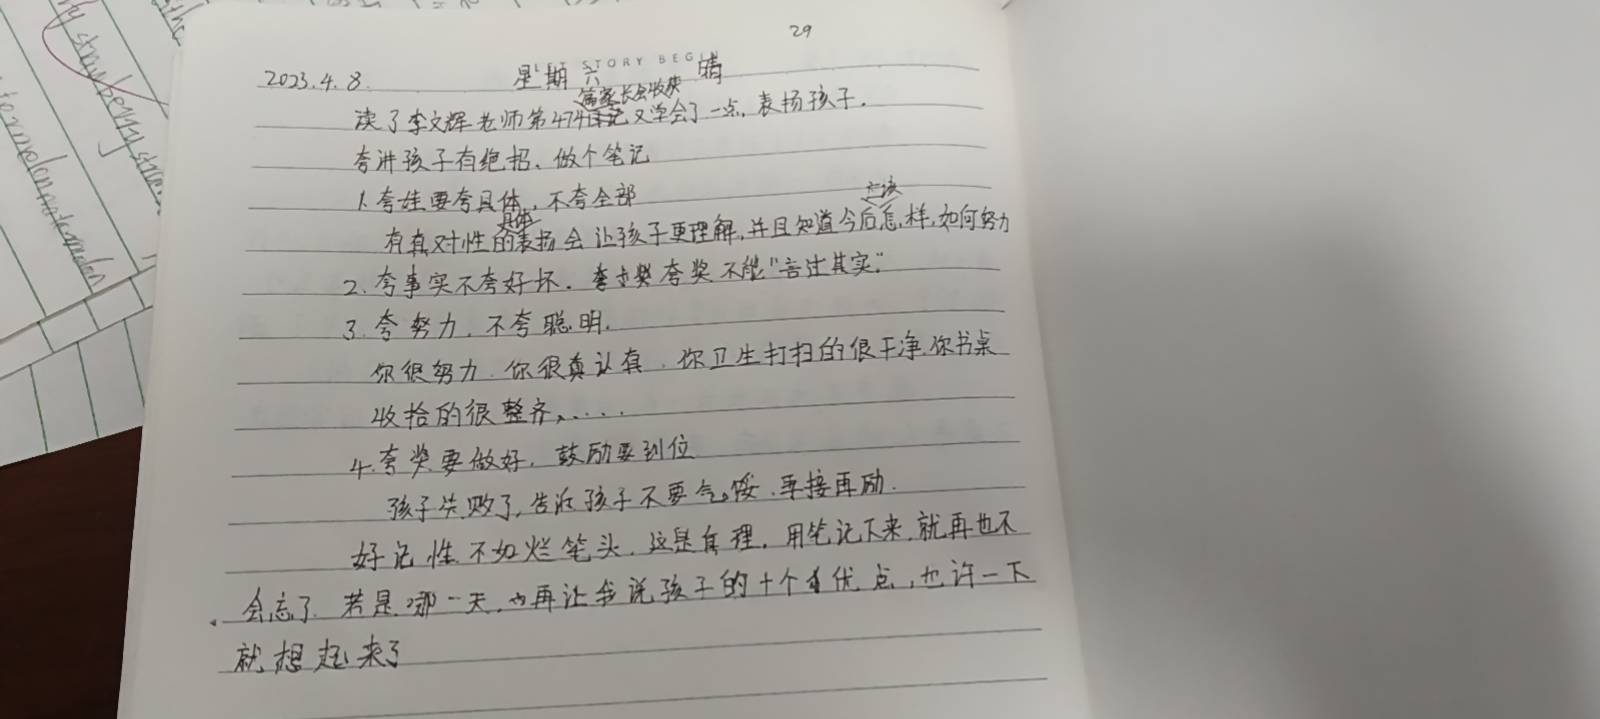 29
LET STORY BEGIN
2023.4.8. 星期六 晴
读了李文辉老师第474篇家长会收获又学会了一点,表扬孩子.
夸讲孩子有绝招,做个笔记
1.夸娃要夸具体,不夸全部
有真对性的具体表扬会让孩子更理解,并且知道今后应该怎样,如何努力
2.夸事实不夸好坏. 夸奖不能"言过其实."
3.夸努力,不夸聪明.
你很努力.你很认真.你卫生打扫的很干净.你书桌
收拾的很整齐、....
4.夸奖要做好,鼓励要到位
孩子失败了,告诉孩子不要气馁.再接再励.
好记性不如烂笔头.这是真理.用笔记下来,就再也不
会忘了.若是哪一天,再让我说孩子的十个优点,也许一下
就想起来了
strawberry